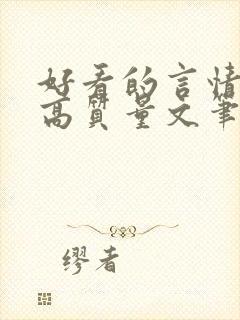 好看的言情
高质量文笔
缪者